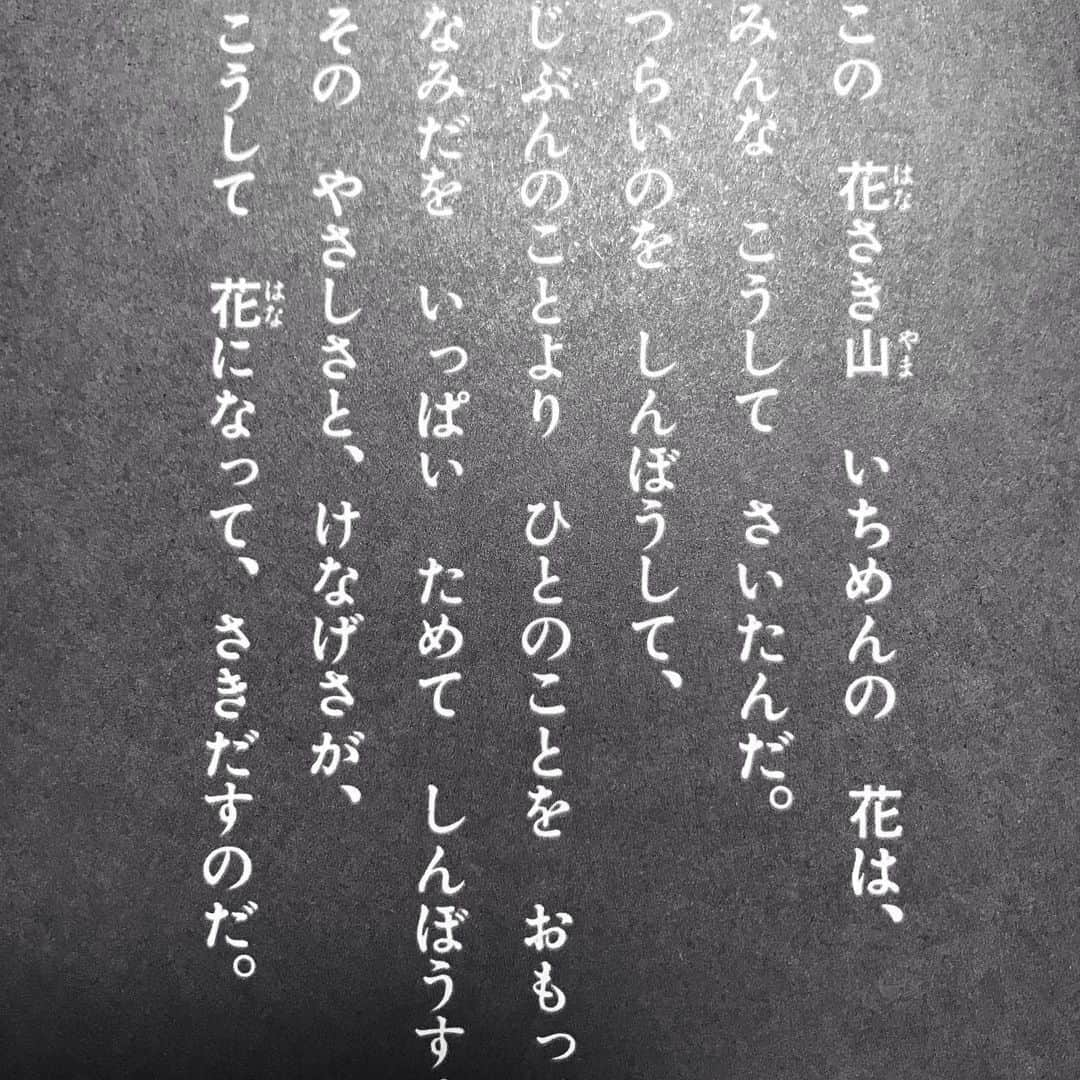 この　花さき山　いちめんの　花は、
みんな　こうして　さいたんだ。
つらいのを　しんぼうして、
じぶんのことより　ひとのことを　おもっ
なみだを　いっぱい　ためて　しんぼうす
その　やさしさと、けなげさが、
こうして　花になって、さきだすのだ。